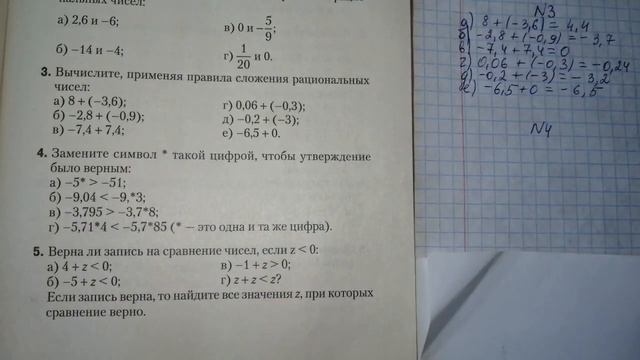 чисел:
а) 2,6 и −6;
в) 0 и −5/9;
б) −14 и −4;
г) 1/20 и 0.
3. Вычислите, применяя правила сложения рациональных
чисел:
а) 8 + (−3,6);
г) 0,06 + (−0,3);
б) −2,8 + (−0,9);
д) −0,2 + (−3);
в) −7,4 + 7,4;
е) −6,5 + 0.
4. Замените символ * такой цифрой, чтобы утверждение
было верным:
а) −5* > −51;
б) −9,04 < −9,*3;
в) −3,795 > −3,7*8;
г) −5,71*4 < −5,7*85 (* — это одна и та же цифра).
5. Верна ли запись на сравнение чисел, если z < 0:
а) 4 + z < 0;
в) −1 + z > 0;
б) −5 + z < 0;
г) z + z < z?
Если запись верна, то найдите все значения z, при которых
сравнение верно.
N3
а) 8 + (−3,6) = 4,4
б) −2,8 + (−0,9) = −3,7
в) −7,4 + 7,4 = 0
г) 0,06 + (−0,3) = −0,24
д) −0,2 + (−3) = −3,2
е) −6,5 + 0 = −6,5
N4